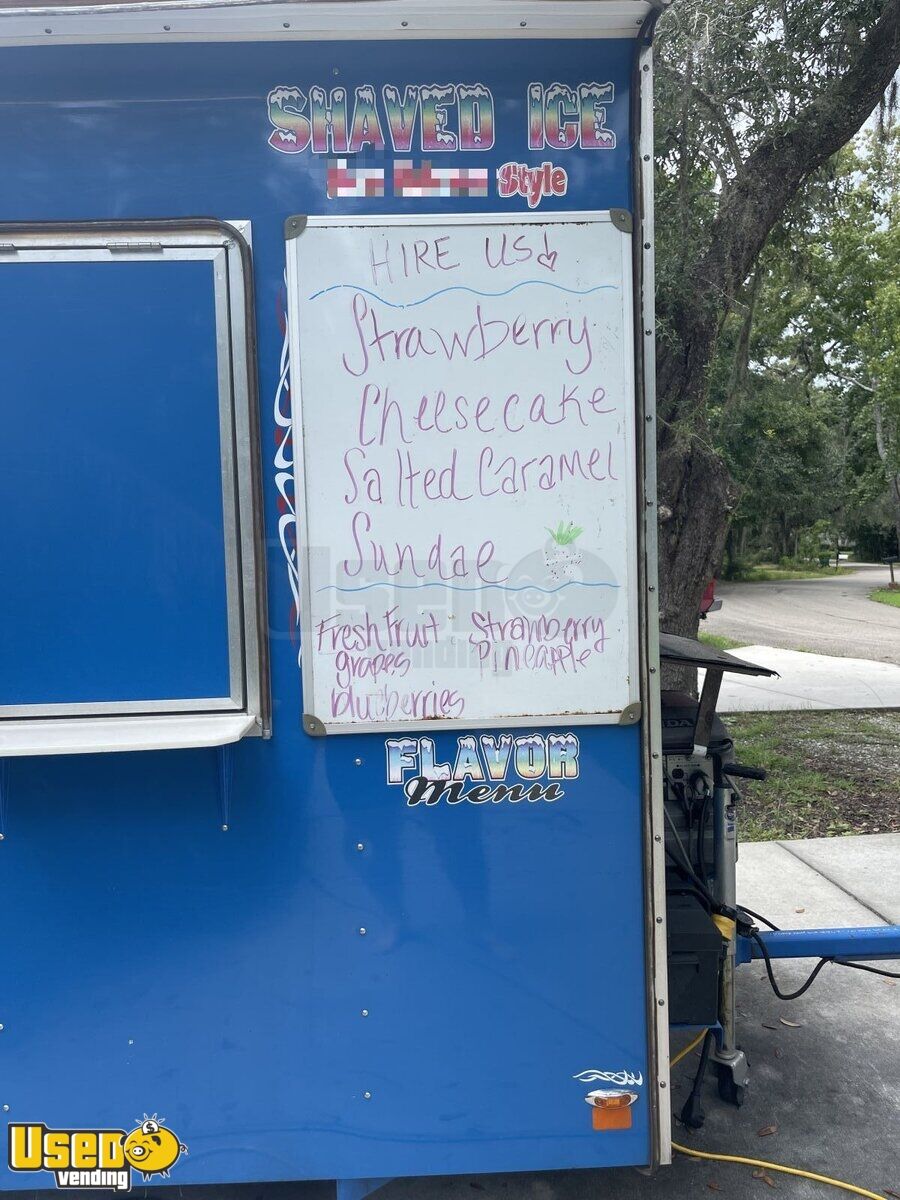 SHAVED ICE
Style
HIRE US
Strawberry
Cheesecake
Salted Caramel
Sundae
Fresh Fruit Strawberry
grapes Pineapple
blueberries
FLAVOR
Menu
HONDA
USED
vending